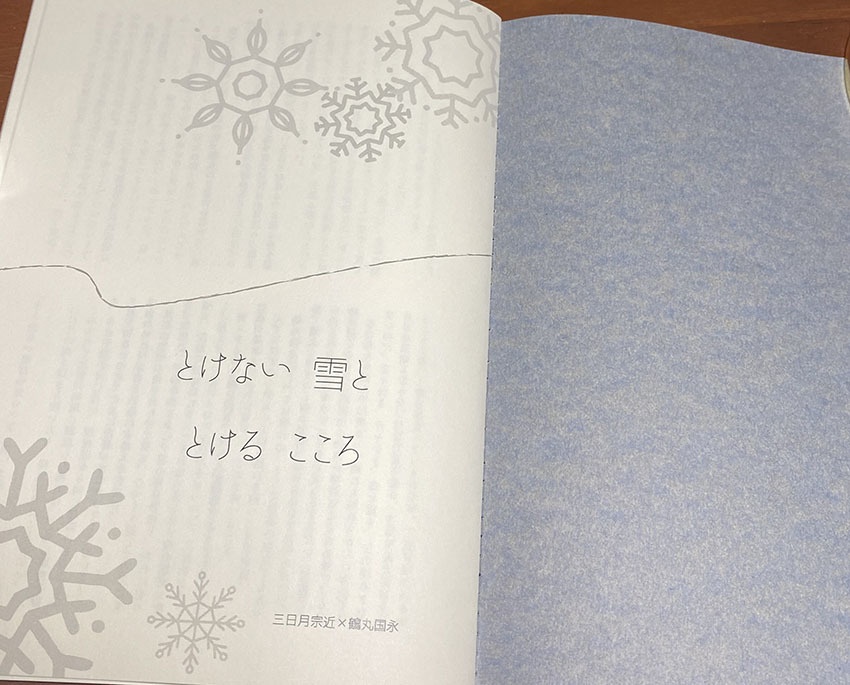 とけない 雪と
とける こころ
三日月宗近×鶴丸国永